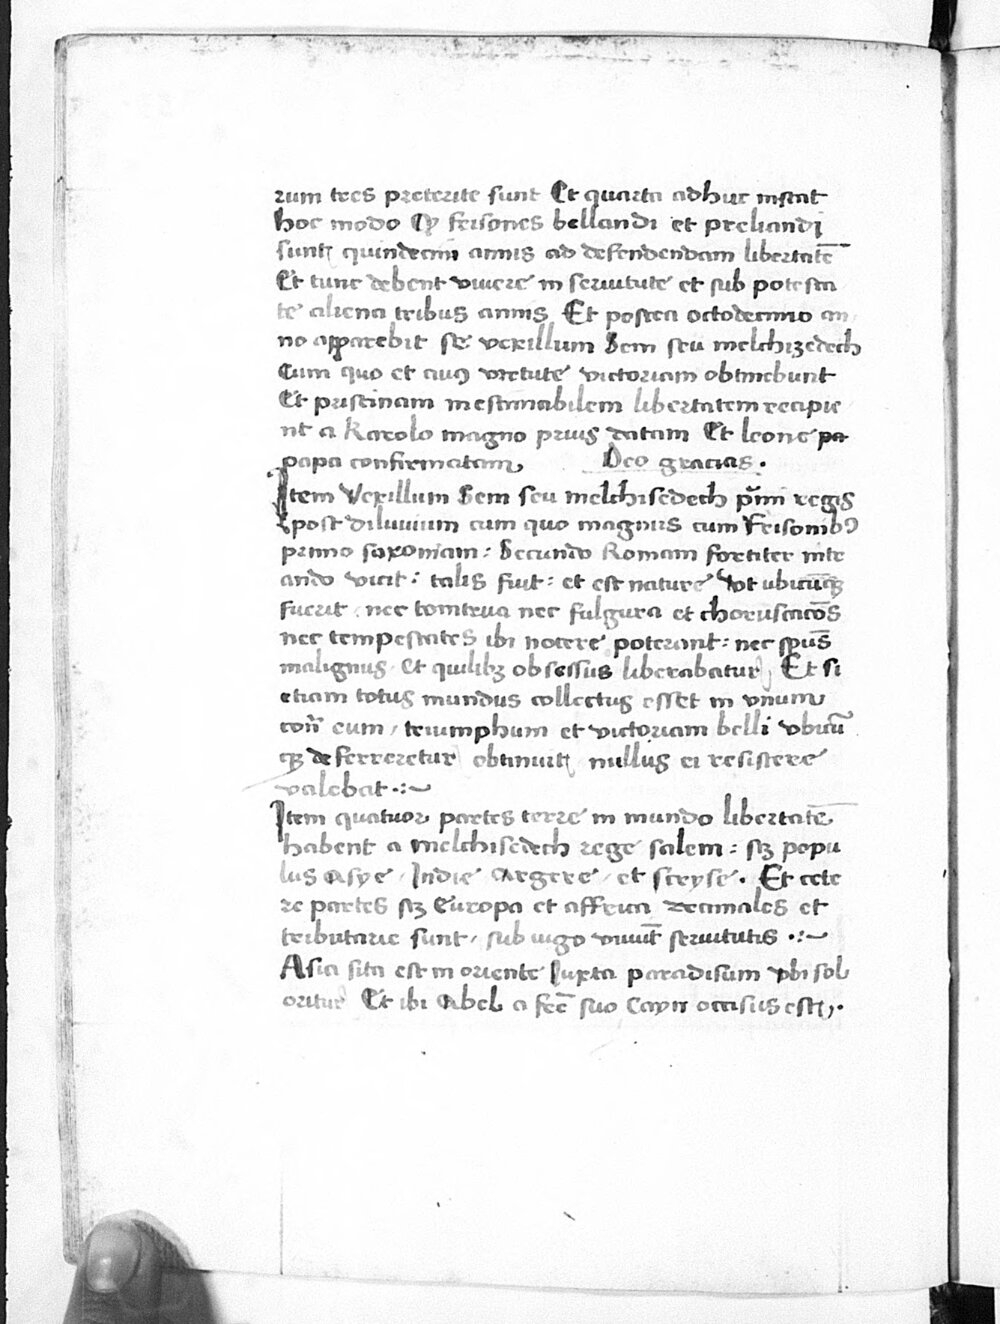 rum tres preterite sunt Et quarta adhuc instat
hoc modo Qz frisones bellandi et preliandi
sunt quindecim annis ad defendendam libertatē
Et tunc debent viuere in seruitute et sub potesta
te aliena tribus annis Et postea octodecimo an
no apparebit scz vexillum Sem seu melchizedech
Cum quo et cuius virtute victoriam obtinebunt
Et pristinam inestimabilem libertatem recipie
nt a Karolo magno prius datam Et leone pa
papa confirmatam Deo gracias.
Item Vexillum Sem seu melchisedech pͥmi regis
post diluuium cum quo magnus cum Frisonibꝰ
primo saxoniam : Secundo Romam fortiter intr
ando vicit : talis fuit : et est nature vt vbicūqꝫ
fuerit . nec tonitrua nec fulgura et choruscacōs
nec tempestates ibi nocere poterant : nec spūs
malignus / et quilibꝫ obsessus liberabatur Et si
etiam totus mundus collectus esset in vnum
cont̄ eum / triumphum et victoriam belli vbicū
qꝫ deferreretur obtinuit nullus ei resistere
valebat .:~
Item quatuor partes terre in mundo libertatē
habent a Melchisedech rege salem : scꝫ popu
lus Asye / Indie Argere / et scryse . Et cete
re partes scꝫ Europa et affrica decimales et
tributarie sunt / sub iugo viuūt seruitutis .:~
Asia sita est in oriente Iuxta paradisum vbi sol
oritur Et ibi Abel a frē suo Cayn occisus est.